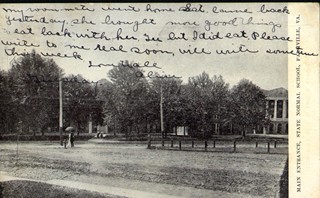 my room mate went home Sat. came back
yesterday, she brought more good things
to eat back with her but I did eat. Please
write to me real soon, will write some time
this week
Lovingly
MAIN ENTRANCE, STATE NORMAL SCHOOL, FARMVILLE, VA.